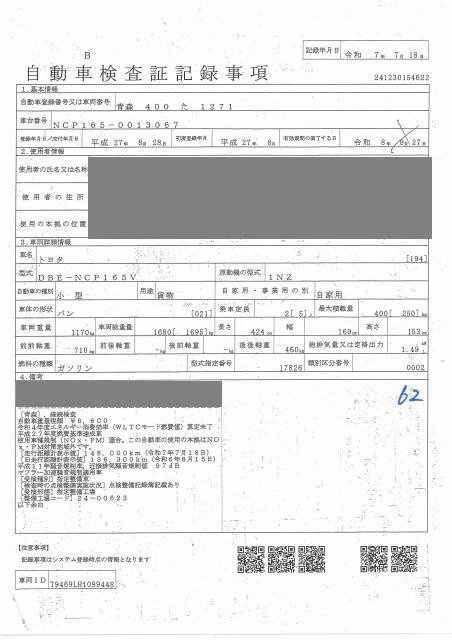 記録年月日 令和 7年 7月18日
B
自動車検査証記録事項
241230154622
1.基本情報
自動車登録番号又は車両番号 青森 400 た 1271
車台番号 NCP165-0013067
登録年月日/交付年月日 平成 27年 8月 28日 初度登録年月 平成 27年 8月 有効期間の満了する日 令和 8年 8月27日
2.使用者情報
使用者の氏名又は名称
使用者の住所
使用の本拠の位置
3.車両詳細情報
車名 トヨタ [194]
型式 DBE-NCP165V 原動機の型式 1NZ
自動車の種別 小型 用途 貨物 自家用・事業用の別 自家用
車体の形状 バン [021] 乗車定員 2[ 5]人 最大積載量 400[ 250]kg
車両重量 1170kg 車両総重量 1680[ 1695]kg 長さ 424cm 幅 169cm 高さ 153cm
前前軸重 710kg 前後軸重 -kg 後前軸重 -kg 後後軸重 460kg 総排気量又は定格出力 1.49L
燃料の種類 ガソリン 型式指定番号 17826 類別区分番号 0002
4.備考
62
[青森],継続検査
自動車重量税額 ¥6,600
令和4年度エネルギー消費効率(WLTCモード燃費値)算定未了
平成27年度燃費基準達成車
使用車種規制(NOx・PM)適合,この自動車の使用の本拠はNO
x・PM対策地域外です。
[走行距離計表示値]148,000km(令和7年7月18日)
[旧走行距離計表示値]136,300km(令和6年8月15日)
平成11年騒音規制車,近接排気騒音規制値 97dB
マフラー加速騒音規制適用車
[受検種別]指定整備車
[検査時の点検整備実施状況]点検整備記録簿記載あり
[受検形態]指定整備工場
[整備工場コード]24-00623
以下余白
【注意事項】
記録事項はシステム登録時点の情報となります
車両ID T9469LH1099448